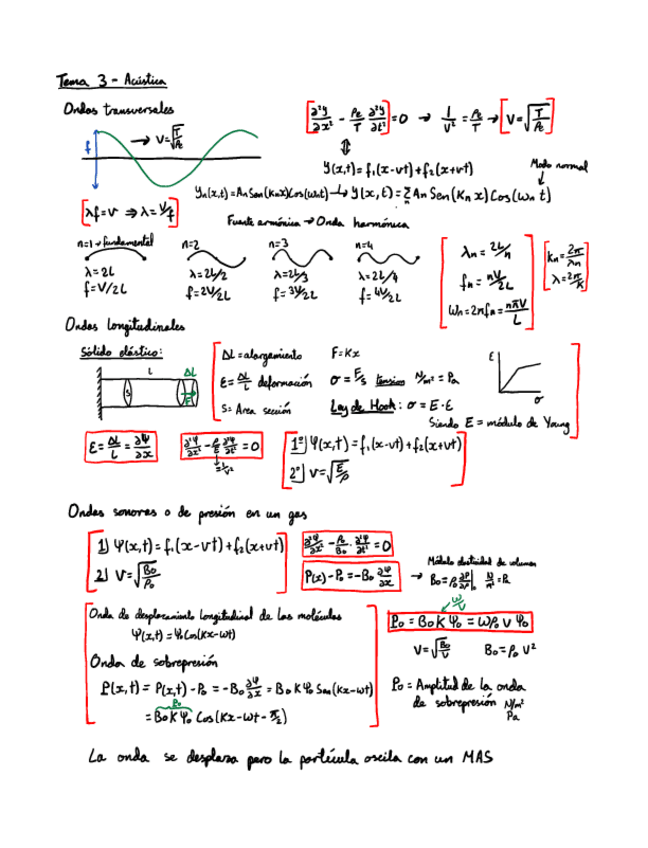 Tema 3 - Acústica
Ondas transversales
[∂²y/∂x² - ρε/T ∂²y/∂t²] = 0 → 1/v² = ρε/T → [v = √(T/ρε)]
→ v = √(T/ρε)
y(x,t) = f₁(x-vt) + f₂(x+vt)
Modo normal
yn(x,t) = An Sen(Knx) Cos(ωnt) → y(x,t) = Σn An Sen(Kn x) Cos(ωn t)
[λf = v ⇒ λ = v/f]
Fuente armónica → Onda harmónica
n=1 → fundamental n=2 n=3 n=4
λ = 2L λ = 2L/2 λ = 2L/3 λ = 2L/4
f = V/2L f = 2V/2L f = 3V/2L f = 4V/2L
λn = 2L/n
fn = nV/2L
ωn = 2πfn = nπV/L
Kn = 2π/λn
λ = 2π/K
Ondas Longitudinales
Sólido elástico:
L ΔL
S F
ΔL = alargamiento F = Kx
ε = ΔL/L deformación σ = F/S tensión N/m² = Pa
S = Area sección Ley de Hook: σ = E·ε
Siendo E = módulo de Young
ε
σ
ε = ΔL/L = ∂Ψ/∂x
∂²Ψ/∂x² - ρ/E ∂²Ψ/∂t² = 0
= 1/v²
1º] Ψ(x,t) = f₁(x-vt) + f₂(x+vt)
2º] v = √(E/ρ)
Ondas sonoras o de presión en un gas
1] Ψ(x,t) = f₁(x-vt) + f₂(x+vt)
2] V = √(B₀/ρ₀)
∂²Ψ/∂x² - ρ₀/B₀ · ∂²Ψ/∂t² = 0
P(x) - P₀ = -B₀ ∂Ψ/∂x
Módulo elasticidad de volumen
→ B₀ = ρ₀ ∂P/∂ρ|₀ N/m² = Pa
Onda de desplazamiento longitudinal de las moléculas
Ψ(x,t) = Ψ₀ Cos(Kx-ωt)
Onda de sobrepresión
P(x,t) = P(x,t) - P₀ = -B₀ ∂Ψ/∂x = B₀ K Ψ₀ Sen(Kx-ωt)
P₀
= B₀KΨ₀ Cos(Kx-ωt-π/2)
ω/V
P₀ = B₀ K Ψ₀ = ωρ₀ v Ψ₀
V = √(B₀/ρ₀) B₀ = ρ₀ V²
P₀ = Amplitud de la onda
de sobrepresión N/m²
Pa
La onda se desplaza pero la partícula oscila con un MAS